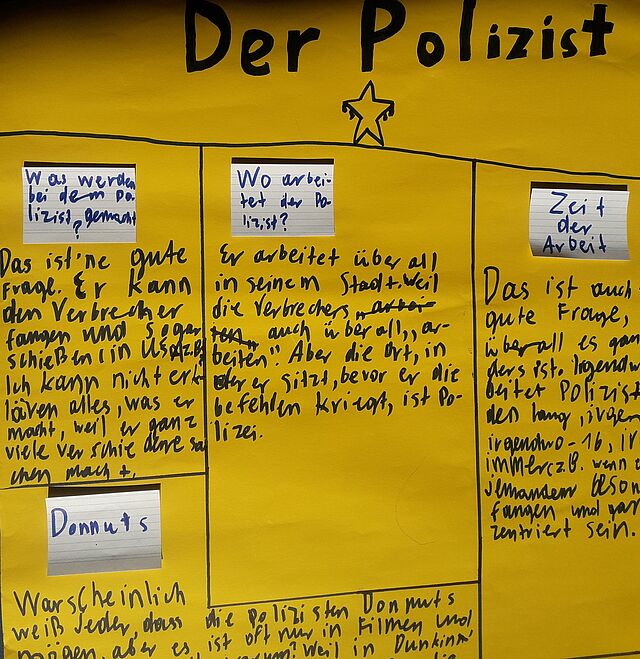 Der Polizist
Was werden
bei dem Po-
lizist gemacht
?
Das ist'ne gute
Frage. Er kann
den Verbrecher
fangen und sogar
schießen (in USA z.B.)
Ich kann nicht erk-
lären alles, was er
macht, weil er ganz
viele verschiedene sa
chen macht.
Wo arbei-
tet der Po-
lizist?
Er arbeitet überall
in seinem Stadt. Weil
die Verbrechers „arbei-
ten„ auch überall„ar-
beiten". Aber die Ort, in
der er sitzt, bevor er die
befehlen kriegt, ist Po-
lizei.
Zeit
der
Arbeit
Das ist auch
gute Frage,
überall es gan
ders ist. Irgendw
beitet Polizist
den lang, irgen
irgendwo-16, ir
immer(z.B. wenn e
jemandem beson
fangen und gan
zentriert sein.
Donnuts
Warscheinlich
weiß Jeder, dass die Polizisten Donnuts
mögen, aber es ist oft nur in Filmen und
Weil in Dunkinn'